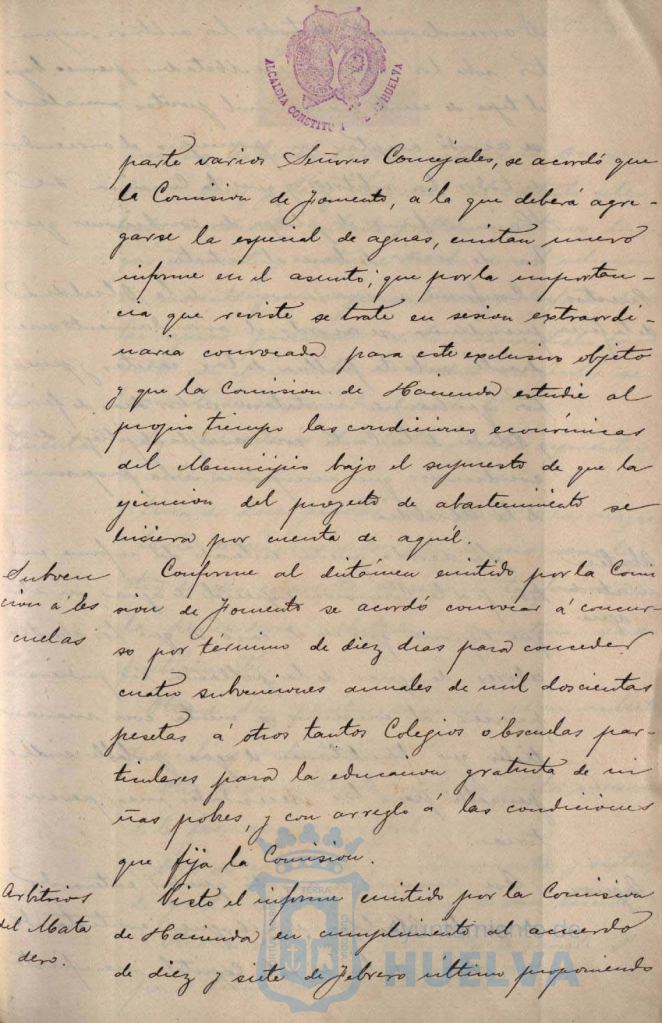 ALCALDIA CONSTITU DE HUELVA
parte varios Señores Concejales, se acordó que
la Comision de Fomento, á la que deberá agre-
garse la especial de aguas, emitan nuevo
informe en el asunto; que por la importan-
cia que reviste se trate en sesion extraordi-
naria convocada para este exclusivo objeto
y que la Comision de Hacienda estudie al
propio tiempo las condiciones económicas
del Municipio bajo el supuesto de que la
ejecucion del proyecto de abastecimiento se
hiciera por cuenta de aquél.
Subven
cion á Es
cuelas
Conforme al dictámen emitido por la Comi
sion de Fomento se acordó convocar á concur-
so por término de diez dias para conceder
cuatro subvenciones anuales de mil doscientas
pesetas á otros tantos Colegios ó Escuelas par-
ticulares para la educacion gratuita de ni
ñas pobres, y con arreglo á las condiciones
que fija la Comision.
Arbitrios
del Mata
dero.
Visto el informe emitido por la Comision
de Hacienda en cumplimiento al acuerdo
de diez y siete de Febrero último proponiendo
Ayuntamiento de
HUELVA